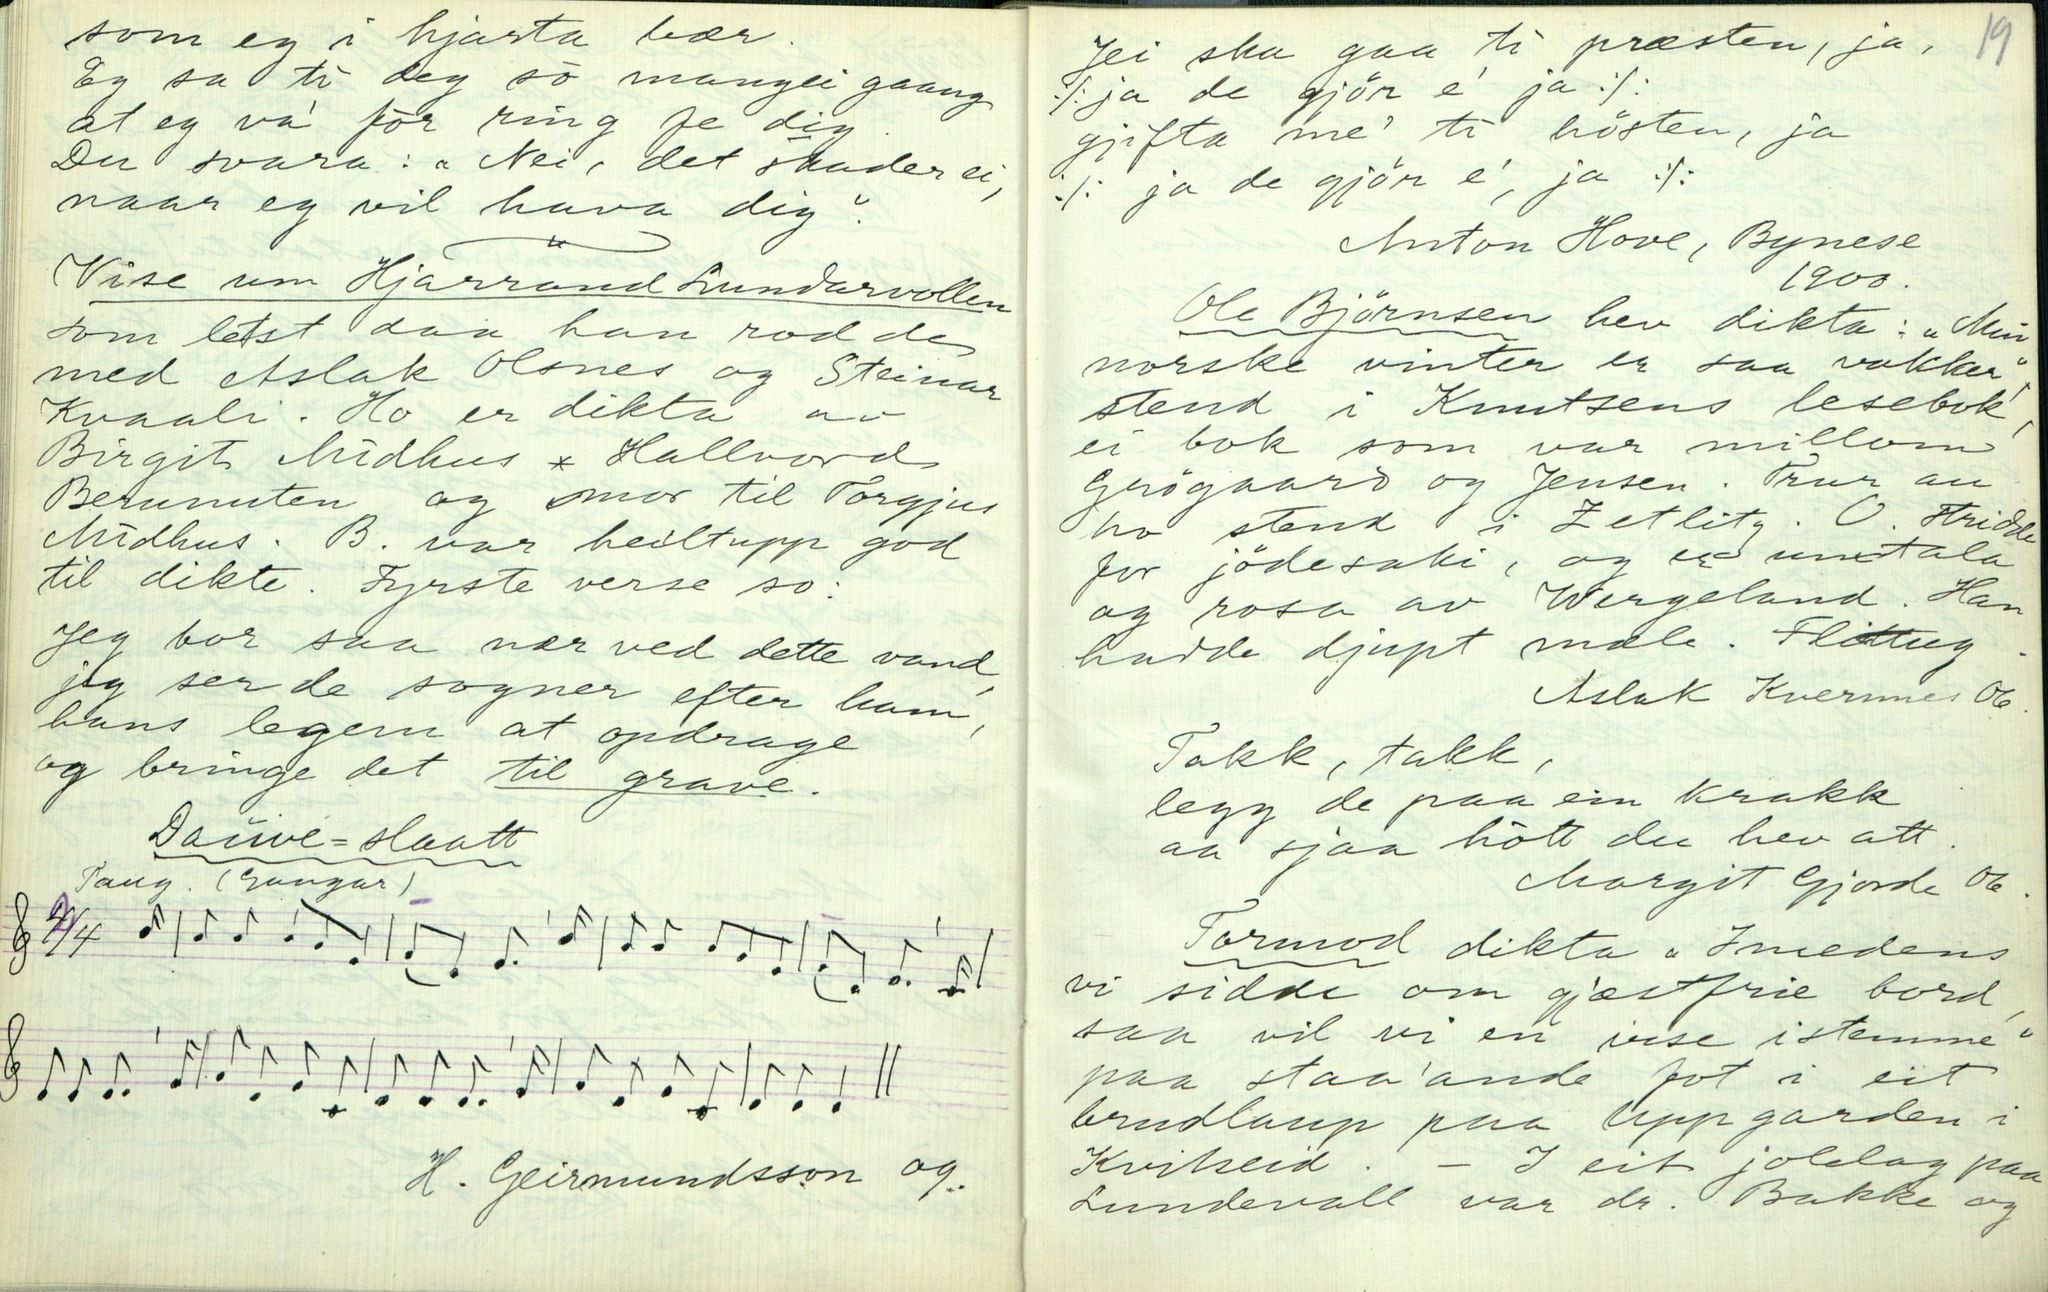 som eg i hjarta bær.
Eg sa ti deg so mangei gaang
at eg va' for ring fe dig.
Du svara: "Nei, det skader ei,
naar eg vil hava dig".
Vise um Hjarrand Lundarvollen
som letst daa han rodde
med Aslak Olsnes og Steinar
Kvaali. Ho er dikta av
Birgit Midhus * Hallvord
Berunuten og mor til Torgjus
Midhus. B. var heiltupp god
til dikte. Fyrste verse so:
Jeg bor saa nær ved dette vand,
jeg ser de sogner efter ham,
hans legem at opdrage
og bringe det til grave.
Dauve=slaatt
Taug. (Gangar)
4/4
H. Geirmundsson og.
19
Jei ska gaa ti præsten, ja,
:/: ja de gjör e' ja :/:
gjifta me' ti hösten, ja
:/: ja de gjör e', ja :/:
Anton Hove, Bynese
1900.
Ole Björnsen hev dikta: "Min
norske vinter er saa vakker",
stend i Knutsens lesebok,
ei bok som var millom
Grögaard og Jensen. Trur au
ho stend i Zetlitz. O. stridde
for jödesaki, og er umtala
og rosa av Wergeland. Han
hadde djupt mæle. Flittug.
Aslak Kvernnes 06.
Takk, takk,
legg de paa ein krakk
aa sjaa hött du hev att.
Margit Gjorde 06.
Tormod dikta "Imedens
vi sidde om gjæstfrie bord,
saa vil vi en vise istemme"
paa staa'ande fot i eit
brudlaup paa Uppgarden i
Kviteseid. – I eit jolelag paa
Lundevall var dr. Bakke og